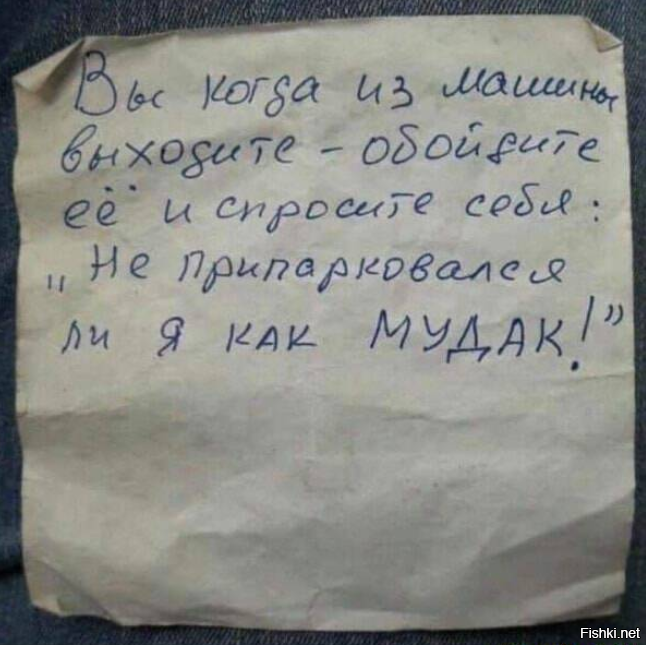 Вы когда из машины
выходите - обойдите
её и спросите себя:
„Не припарковался
ли я как МУДАК!”
Fishki.net